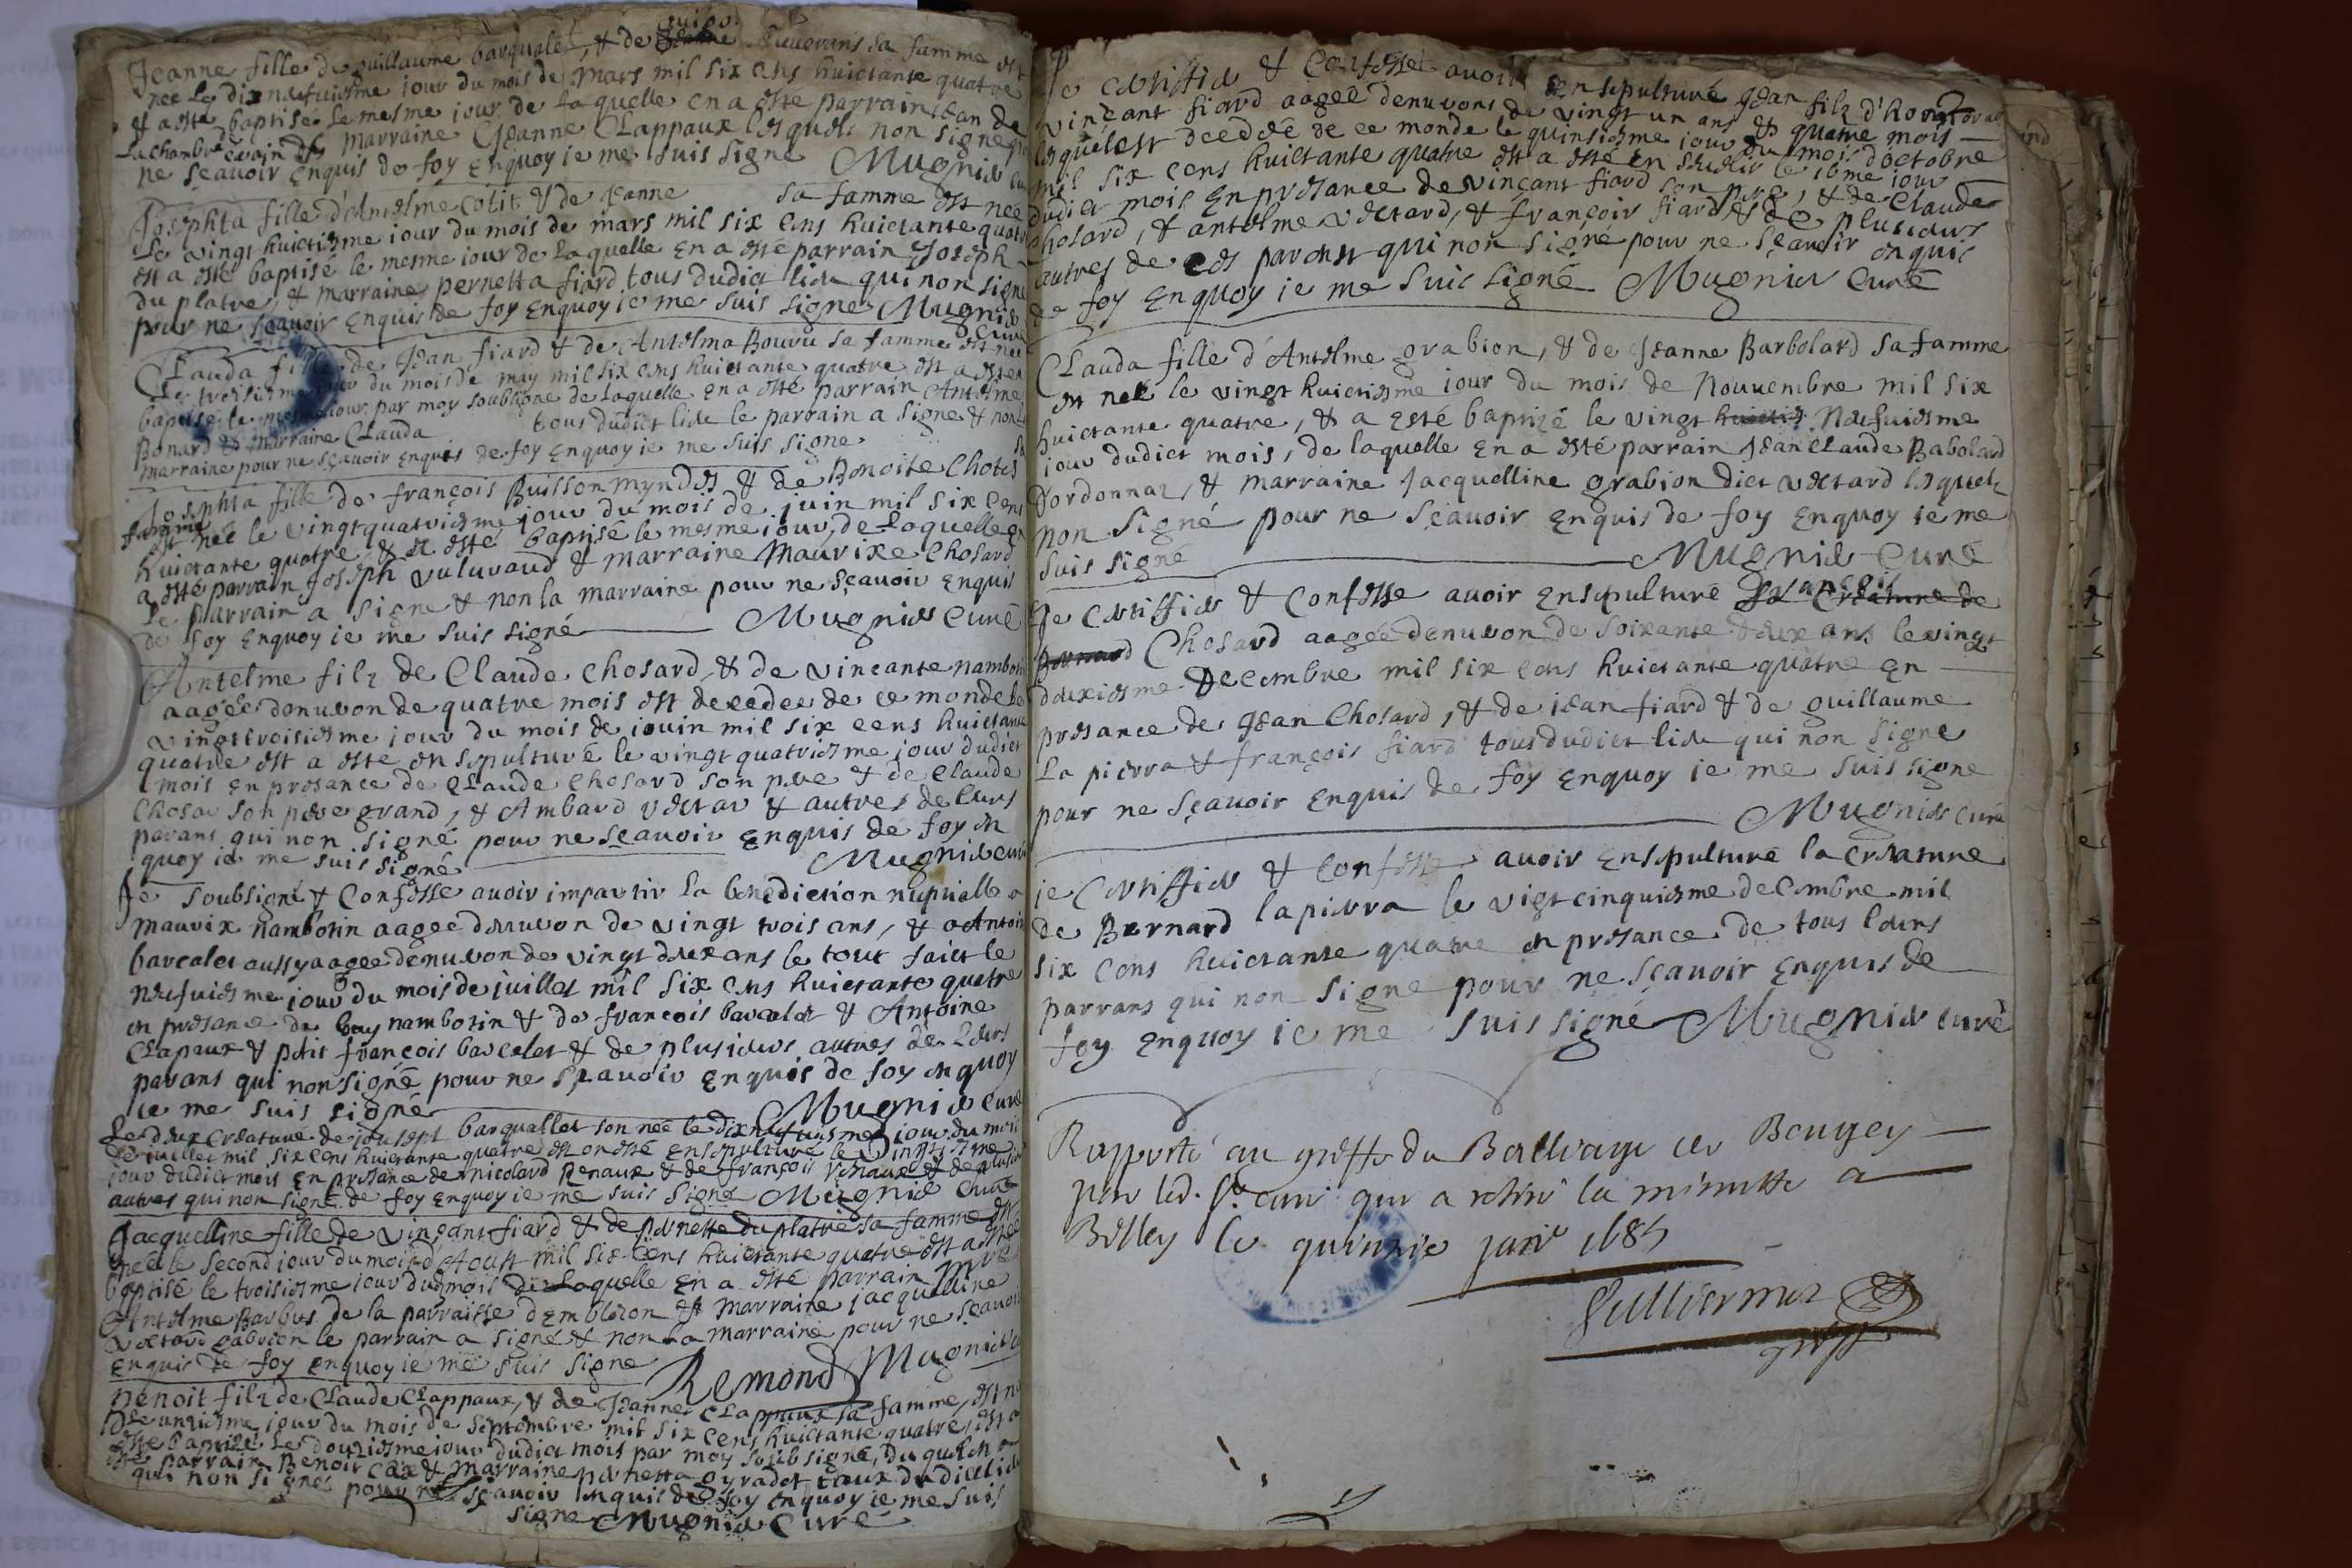 Jeanne fille de guillaume barqualet, & de sa famme est
née le dixneufuiesme iour du mois de mars mil six cens huictante quatre
& a esté baptisée le mesme iour de laquelle en a esté parrain Jean de
la chambre & marraine Jeanne Clappaux lesquels non signé
ne sçauoir enquis de foy enquoy ie me suis signé Mugnier
Josephta fille d'Antelme Cotit & de Jeanne sa famme est nee
Le vingt huictiesme iour du mois de mars mil six cens huictante quatre
est a esté baptisé le mesme iour de laquelle en a esté parrain Joseph
du platre, & marraine pernetta fiard tous dudict lieu qui non signé
pour ne sçauoir enquis de foy enquoy ie me suis signé Mugnier
Curé
Clauda fille de Jean fiard & de Antelma Bouvu sa famme est née
Le troisiesme iour du mois de may mil six cens huictante quatre est a esté
baptisé le mesme iour par moy soubsigné de laquelle en a esté parrain Antelme
Bonard & marraine Clauda tous dudict lieu le parrain a signé & non la
marraine pour ne sçauoir enquis de foy enquoy ie me suis signé
Josephta fille de françois Buisson myndes & de Benoite Chotes sa
famme est née le vingtquatriesme iour du mois de juin mil six cens
huictante quatre & a esté baptisé le mesme iour, de laquelle en
a esté parrain Joseph vuluraud & marraine Maurixe Chosard
le parrain a signé & non la marraine pour ne sçauoir enquis
de foy enquoy ie me suis signé Mugnier Curé
Antelme filz de Claude Chosard, & de vincante nambotin
aagée denuvon de quatre mois est decedee de ce monde le
vingttroisiesme iour du mois de iouin mil six cens huictante
quatre est a esté ensepulturé le vingt quatriesme iour dudict
mois en presance de Claude Chosard son pere & de Claude
Chosar son pere grand, & Ambard vectar & autres de leurs
parans qui non signé pour ne sçauoir enquis de foy en
quoy ie me suis signé Mugnier curé
Je soubsigné & confesse auoir impartir la benediction nuptialle a
maurix nambotin aagee denuvon de vingt trois ans, & a Antoine
barcalet aussy aagee denuvon de vingt deux ans le tout faict le
neufuiesme iour du mois de juillet mil six cens huictante quatre
en presance de nambotin & de françois barcalet & Antoine
Clapeaux & petit françois barcelet & de plusieurs autres de leurs
parans qui non signé pour ne sçauoir enquis de foy enquoy
ie me suis signé Mugnier Curé
Les deux creature de iouseph barquallet son née le dixneufuiesme iour du mois
de juillet mil six cens huictante quatre est on esté ensepulturé le vingtiesme
iour dudict mois en presance de nicolard Renaux & de françois renaux & de plusieurs
autres qui non signé de foy enquoy ie me suis signé Mugnier Curé
Jacquelline fille de vinçant fiard & de pernette du platre sa famme est
née le second iour du mois d'Aoust mil six cens huictante quatre est a esté
baptisé le troisiesme iour dud mois de laquelle en a esté parrain mre
Antelme Barbus de la parraisse d'embleon & marraine jacquelline
vectard gabrion le parrain a signé & non la marraine pour ne sçauoir
enquis de foy enquoy ie me suis signé Remond Mugnier
Benoit filz de Claude Clappaux, & de Jeanne Clappaux sa famme, est né
Le unziesme iour du mois de septembre mil six cens huictante quatre, est a
esté baptizé le douziesme iour dudict mois par moy soubsigné, duquel en a
esté parrain Benoit Cax & marraine pernetta gyradet ceux dudict lieu
qui non signés pour ne sçauoir enquis de foy enquoy ie me suis
signé Mugnier Curé
Je certiffier & confesse auoir ensepulturé Jean filz d'honorable
vinçant fiard aageé denuvons de vingt un ans & quatre mois
lequelest decedé de ce monde le quinsiesme iour du mois d'octobre
mil six cens huictante quatre est a esté ensevelir le 16me iour
dudict mois en presance de vinçant fiard son pere, & de Claude
Chosard, & antelme vectard, & françois fiard & de plusieurs
autres de ces parent qui non signé pour ne sçauoir enquis
de foy enquoy ie me suis signé Mugnier Curé
Clauda fille d'Antelme grabion, & de Jeanne Barbolard sa famme
est neé le vingt huictiesme iour du mois de Nouuembre mil six
huictante quatre, & a esté baptizé le vingt Neufuiesme
iour dudict mois, de laquelle en a esté parrain Jean Claude Babolard
d'ordonnaz, & marraine Jacquelline grabion dict vectard lesquels
non signé pour ne sçauoir enquis de foy enquoy ie me
suis signé Mugnier Curé
Je certiffier & confesse auoir ensepulturé françois la Creature de
Bernard Chosard aageé denuvon de soixante deux ans le vingt
deuxiesme Decembre mil six cens huictante quatre en
presance de Jean Chosard, & de iean fiard & de guillaume
La pierra & françois fiard tous dudict lieu qui non signé
pour ne sçauoir enquis de foy enquoy ie me suis signé
Mugnier curé
ie Certiffier & confesse auoir ensepulturé la creature
de Bernard lapierra le vigt cinquiesme decembre mil
six cens huictante quatre en presance de tous leurs
parrans qui non signé pour ne sçauoir enquis de
foy enquoy ie me suis signé Mugnier curé
Rapporté au greffe du Balliage de Bougey
par led. Sr. curé qui a retiré la minutte a
Belley le quinzie janr 1685
Gulliermet
greff